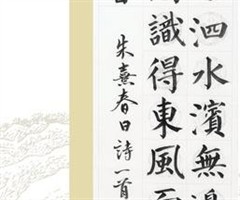 泗水濱無邊
識得東風面
朱熹春日詩一首